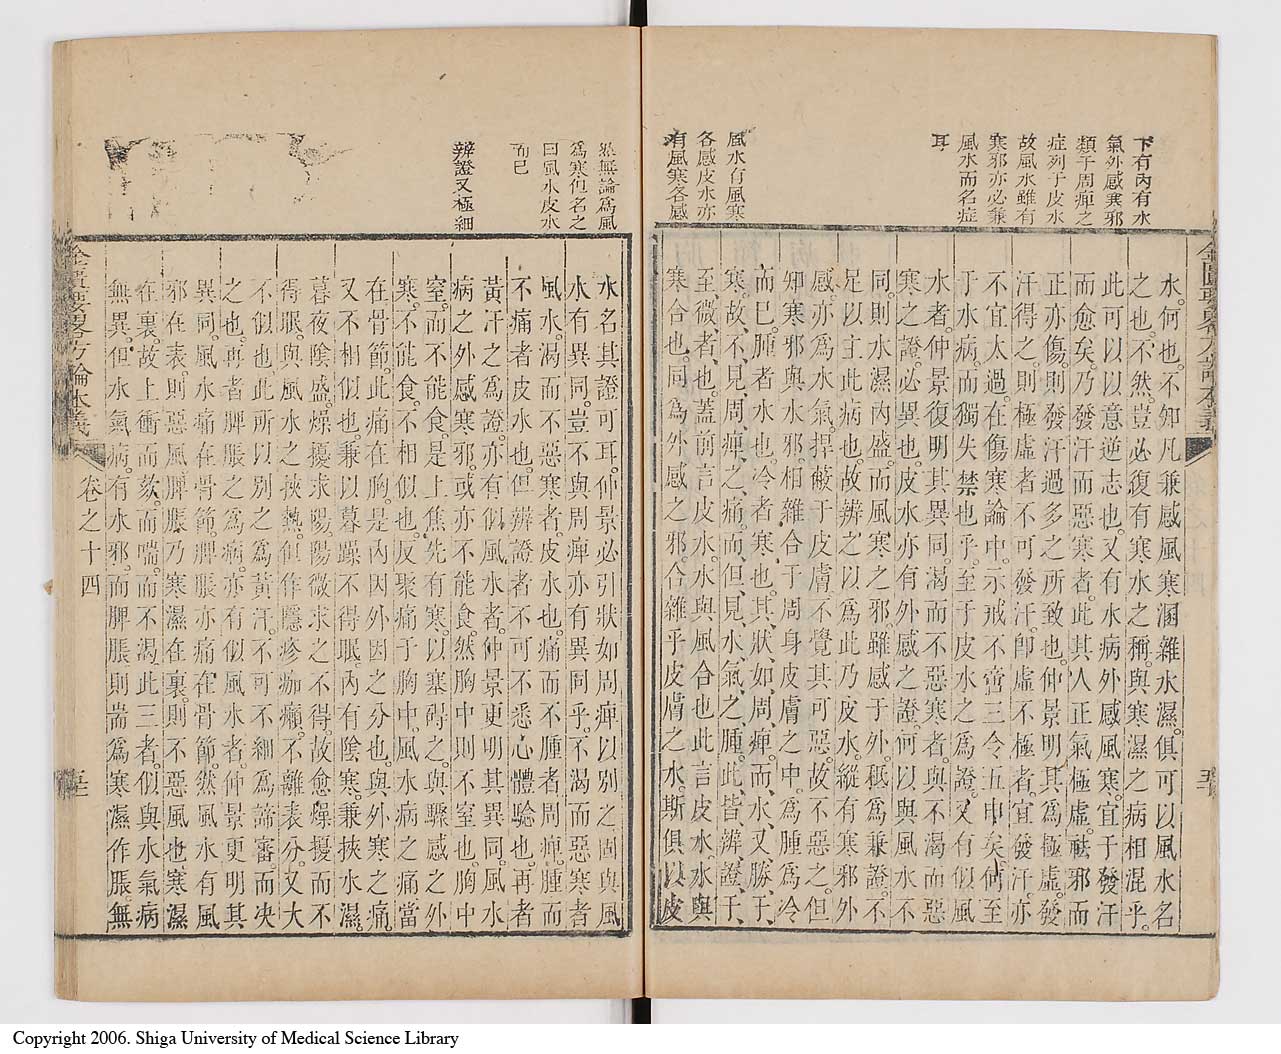 下有内有水
氣外感寒邪
類于周痺之
症列于皮水
故風水雖有
寒邪亦必兼
風水而名症
耳
風水有風寒
各感皮水亦
有風寒各感
水何也不知凡兼感風寒溷雜水濕俱可以風水名
之也不然豈必復有寒水之稱與寒濕之病相混乎
此可以以意逆志也又有水病外感風寒宜于發汗
而愈矣乃發汗而惡寒者此其人正氣極虛祛邪而
正亦傷則發汗過多之所致也仲景明其為極虛發
汗得之則極虛者不可發汗卽虛不極者宜發汗亦
不宜太過在傷寒論中示戒不啻三令五申矣何至
于水病而獨失禁也乎至于皮水之為證又有似風
水者仲景復明其異同渴而不惡寒者與不渴而惡
寒之證必異也皮水亦有外感之證何以與風水不
同則水濕内盛而風寒之邪雖感于外秪為兼證不
足以主此病也故辨之以為此乃皮水縱有寒邪外
感亦為水氣捍蔽于皮膚不覺其可惡故不惡之但
知寒邪與水邪相雜合于周身皮膚之中為腫為冷
而巳腫者水也冷者寒也其狀如周痺而水又勝于
寒故不見周痺之痛而但見水氣之腫此皆辨證于
至微者也蓋前言皮水水與風合也此言皮水水與
寒合也同為外感之邪合雜乎皮膚之水斯俱以皮
金匱要畧方論本義
感無論為風
為寒但名之
曰風水皮水
而已
辨證又極細
水名其證可耳仲景必引狀如周痺以别之固與風
水有異同豈不與周痺亦有異同乎不渴而惡寒者
風水渴而不惡寒者皮水也痛而不腫者周痺腫而
不痛者皮水也但辨證者不可不悉心體驗也再者
黃汗之為證亦有似風水者仲景更明其異同風水
病之外感寒邪或亦不能食然胸中則不窒也胸中
窒而不能食是上焦先有寒以塞碍之與驟感之外
寒不能食不相似也反聚痛于胸中風水病之痛當
在骨節此痛在胸是内因外因之分也與外寒之痛
又不相似也兼以暮躁不得眠内有陰寒兼挾水濕
暮夜陰盛燥擾求陽陽微求之不得故愈燥擾而不
得眠與風水之挾熱但作隱疹痂癩不離表分又大
不似也此所以别之為黃汗不可不細為諦審而决
之也再者脾脹之為病亦有似風水者仲景更明其
異同風水痛在骨節脾脹亦痛在骨節然風水有風
邪在表則惡風脾脹乃寒濕在裏則不惡風也寒濕
在裏故上衝而欬而喘而不渴此三者似與水氣病
無異但水氣病有水邪而脾脹則耑為寒濕作脹無
金匱要畧方論本義
卷之十四